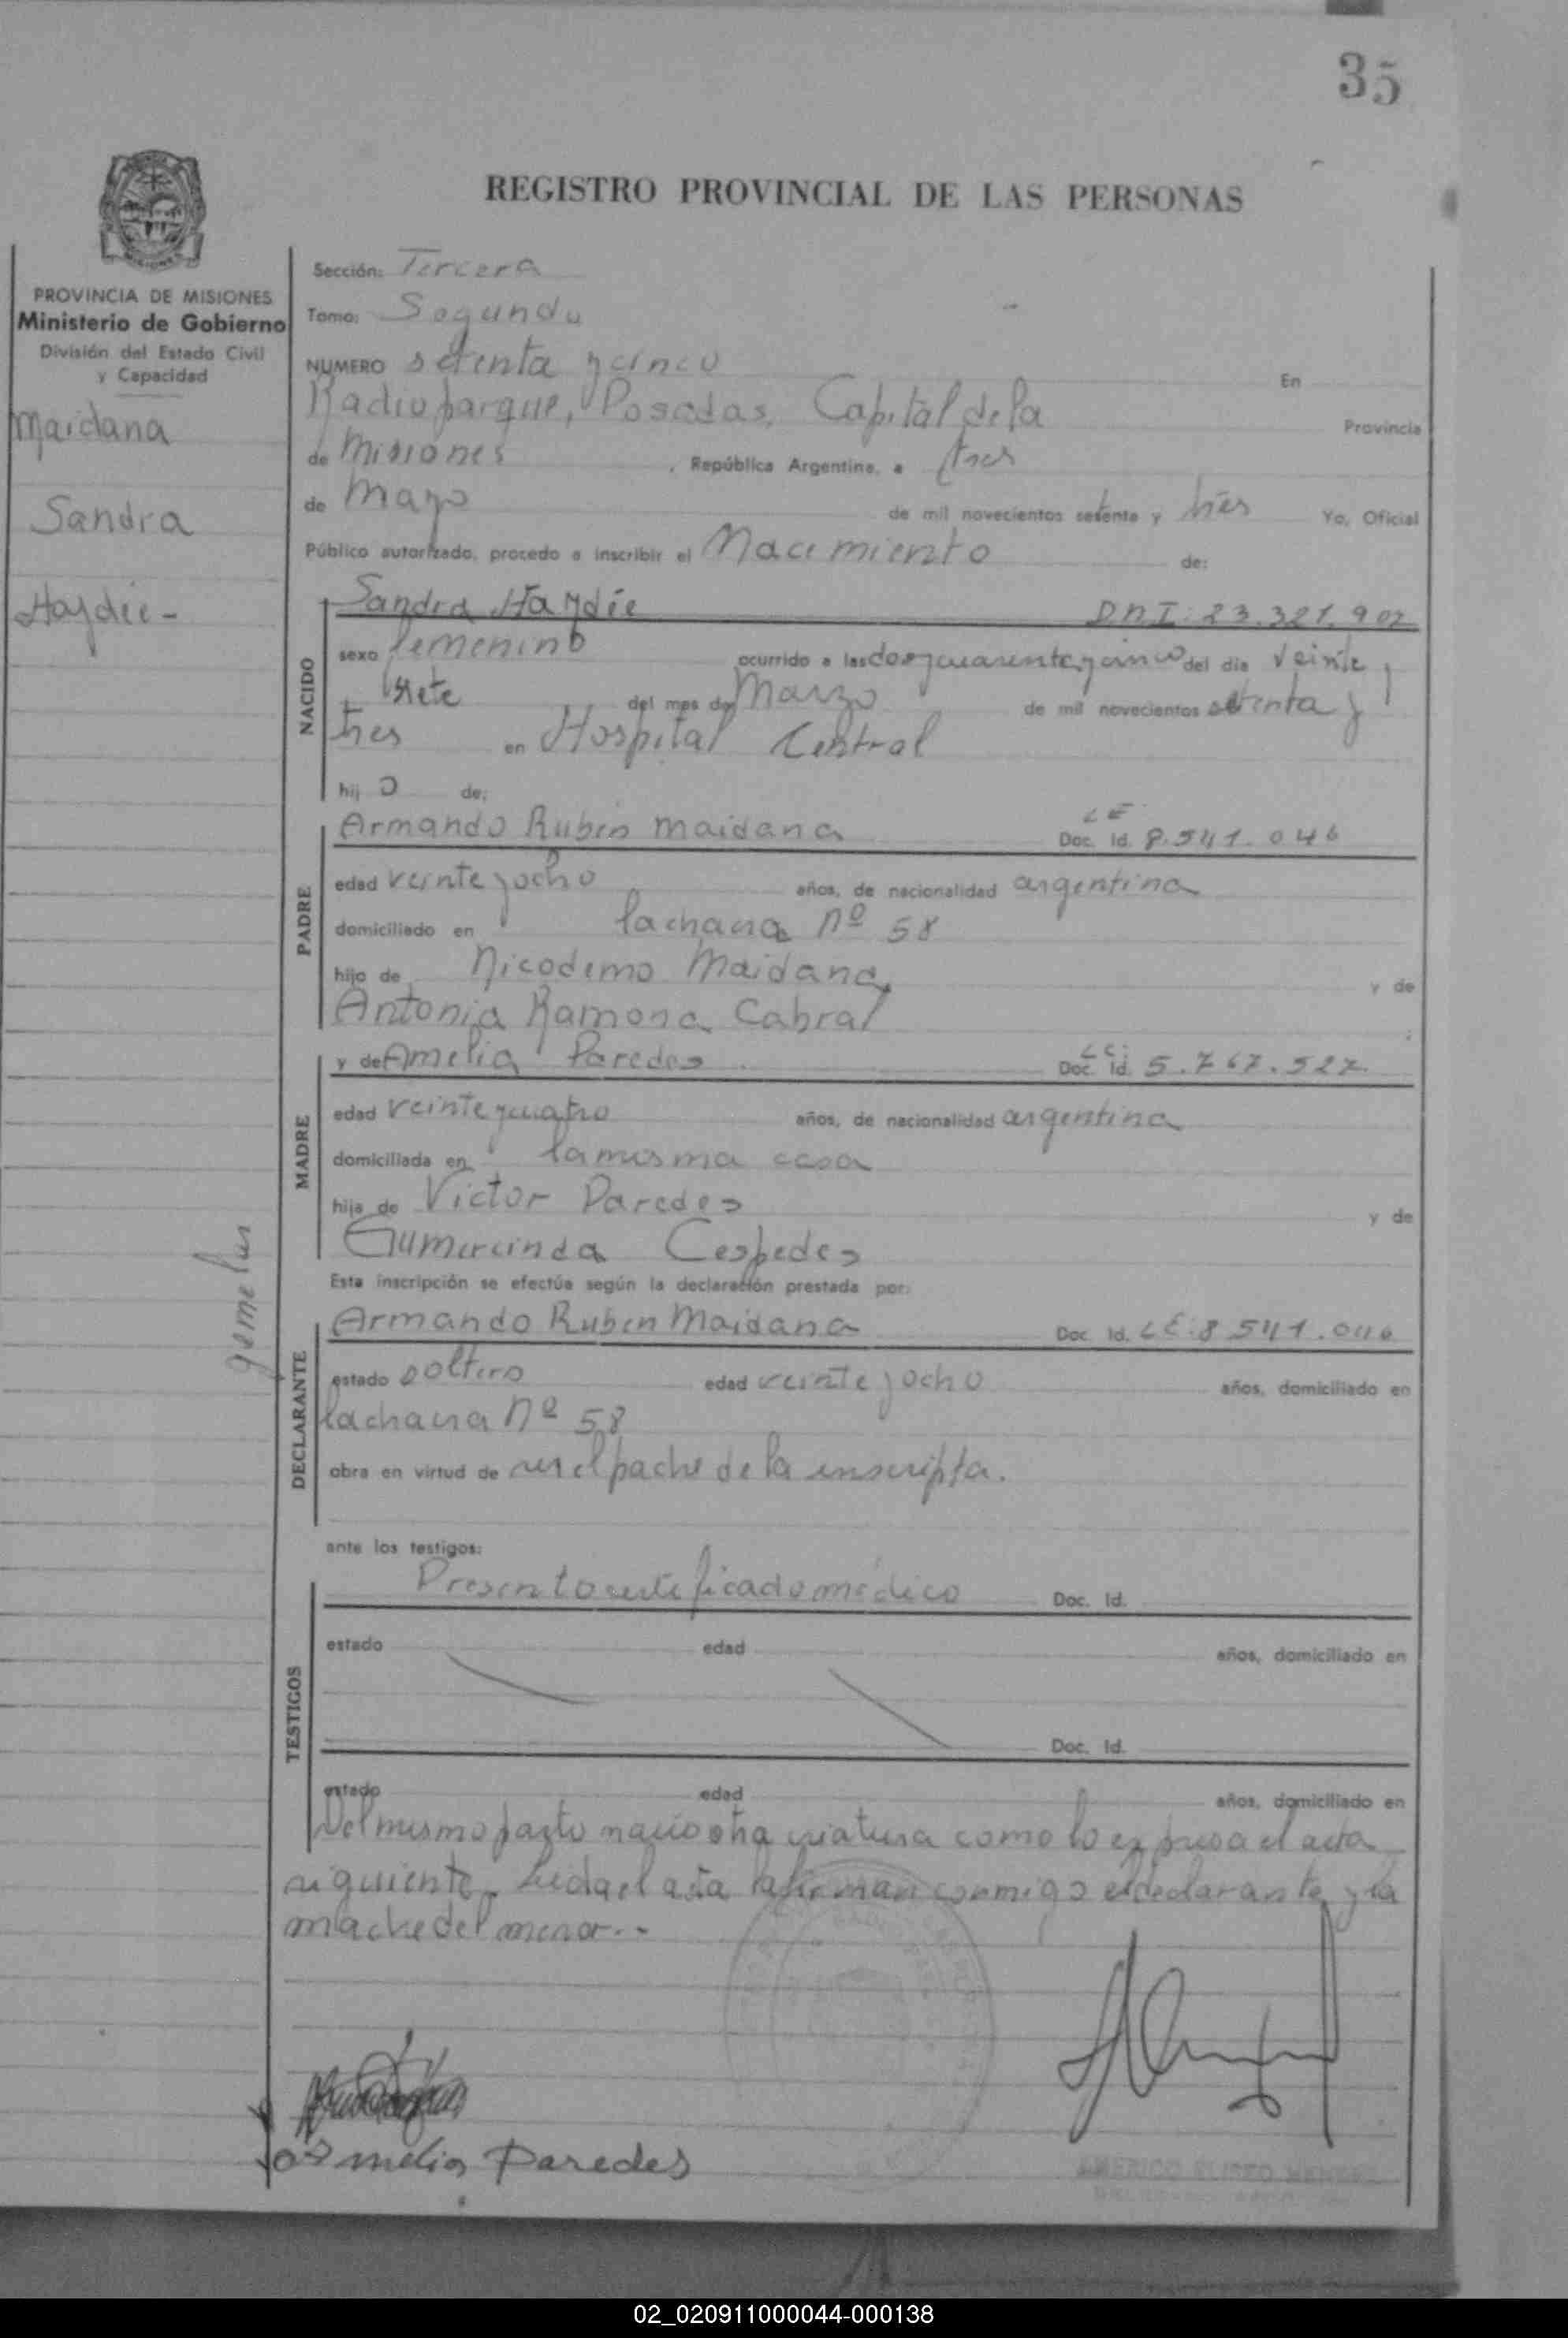 35
REGISTRO PROVINCIAL DE LAS PERSONAS
PROVINCIA DE MISIONES
Ministerio de Gobierno
División del Estado Civil
y Capacidad
Maidana
Sandra
Haydée -
gemelar
Sección: Tercera
Tomo: Segundo
NUMERO setenta y cinco En
Radio parque, Posadas, Capital de la Provincia
de Misiones , República Argentina, a tres
de Mayo de mil novecientos setenta y tres Yo, Oficial
Público autorizado, procedo a inscribir el Nacimiento de:
NACIDO
Sandra Haydée D.N.I. 23.321.902
sexo femenino ocurrido a las dos y cuarenta y cinco del dia veinte y
siete del mes de Marzo de mil novecientos setenta y
tres en Hospital Central
hij a de:
PADRE
Armando Rubén Maidana LE Doc. Id. 8.541.046
edad veinte y ocho años, de nacionalidad argentina
domiciliado en la chacra Nº 58
hijo de Nicodemo Maidana y de
Antonia Ramona Cabral
MADRE
y de Amelia Paredes LC: Doc. Id. 5.767.527
edad veinte y cuatro años, de nacionalidad argentina
domiciliada en la misma casa
hija de Victor Paredes y de
Gumercinda Cespedes
Esta inscripción se efectúa según la declaración prestada por:
DECLARANTE
Armando Ruben Maidana Doc. Id. LE: 8 541.046
estado soltero edad veinte y ocho años, domiciliado en
la chacra Nº 58
obra en virtud de ser el padre de la inscripta.
ante los testigos:
TESTIGOS
Presento certificado médico Doc. Id.
estado edad años, domiciliado en
Doc. Id.
estado edad años, domiciliado en
Del mismo parto nació otra criatura como lo expresa el acta
siguiente. Leida el acta la firman conmigo el declarante y la
madre del menor.--
Amelia Paredes
AMERICO ELISEO
02_020911000044-000138